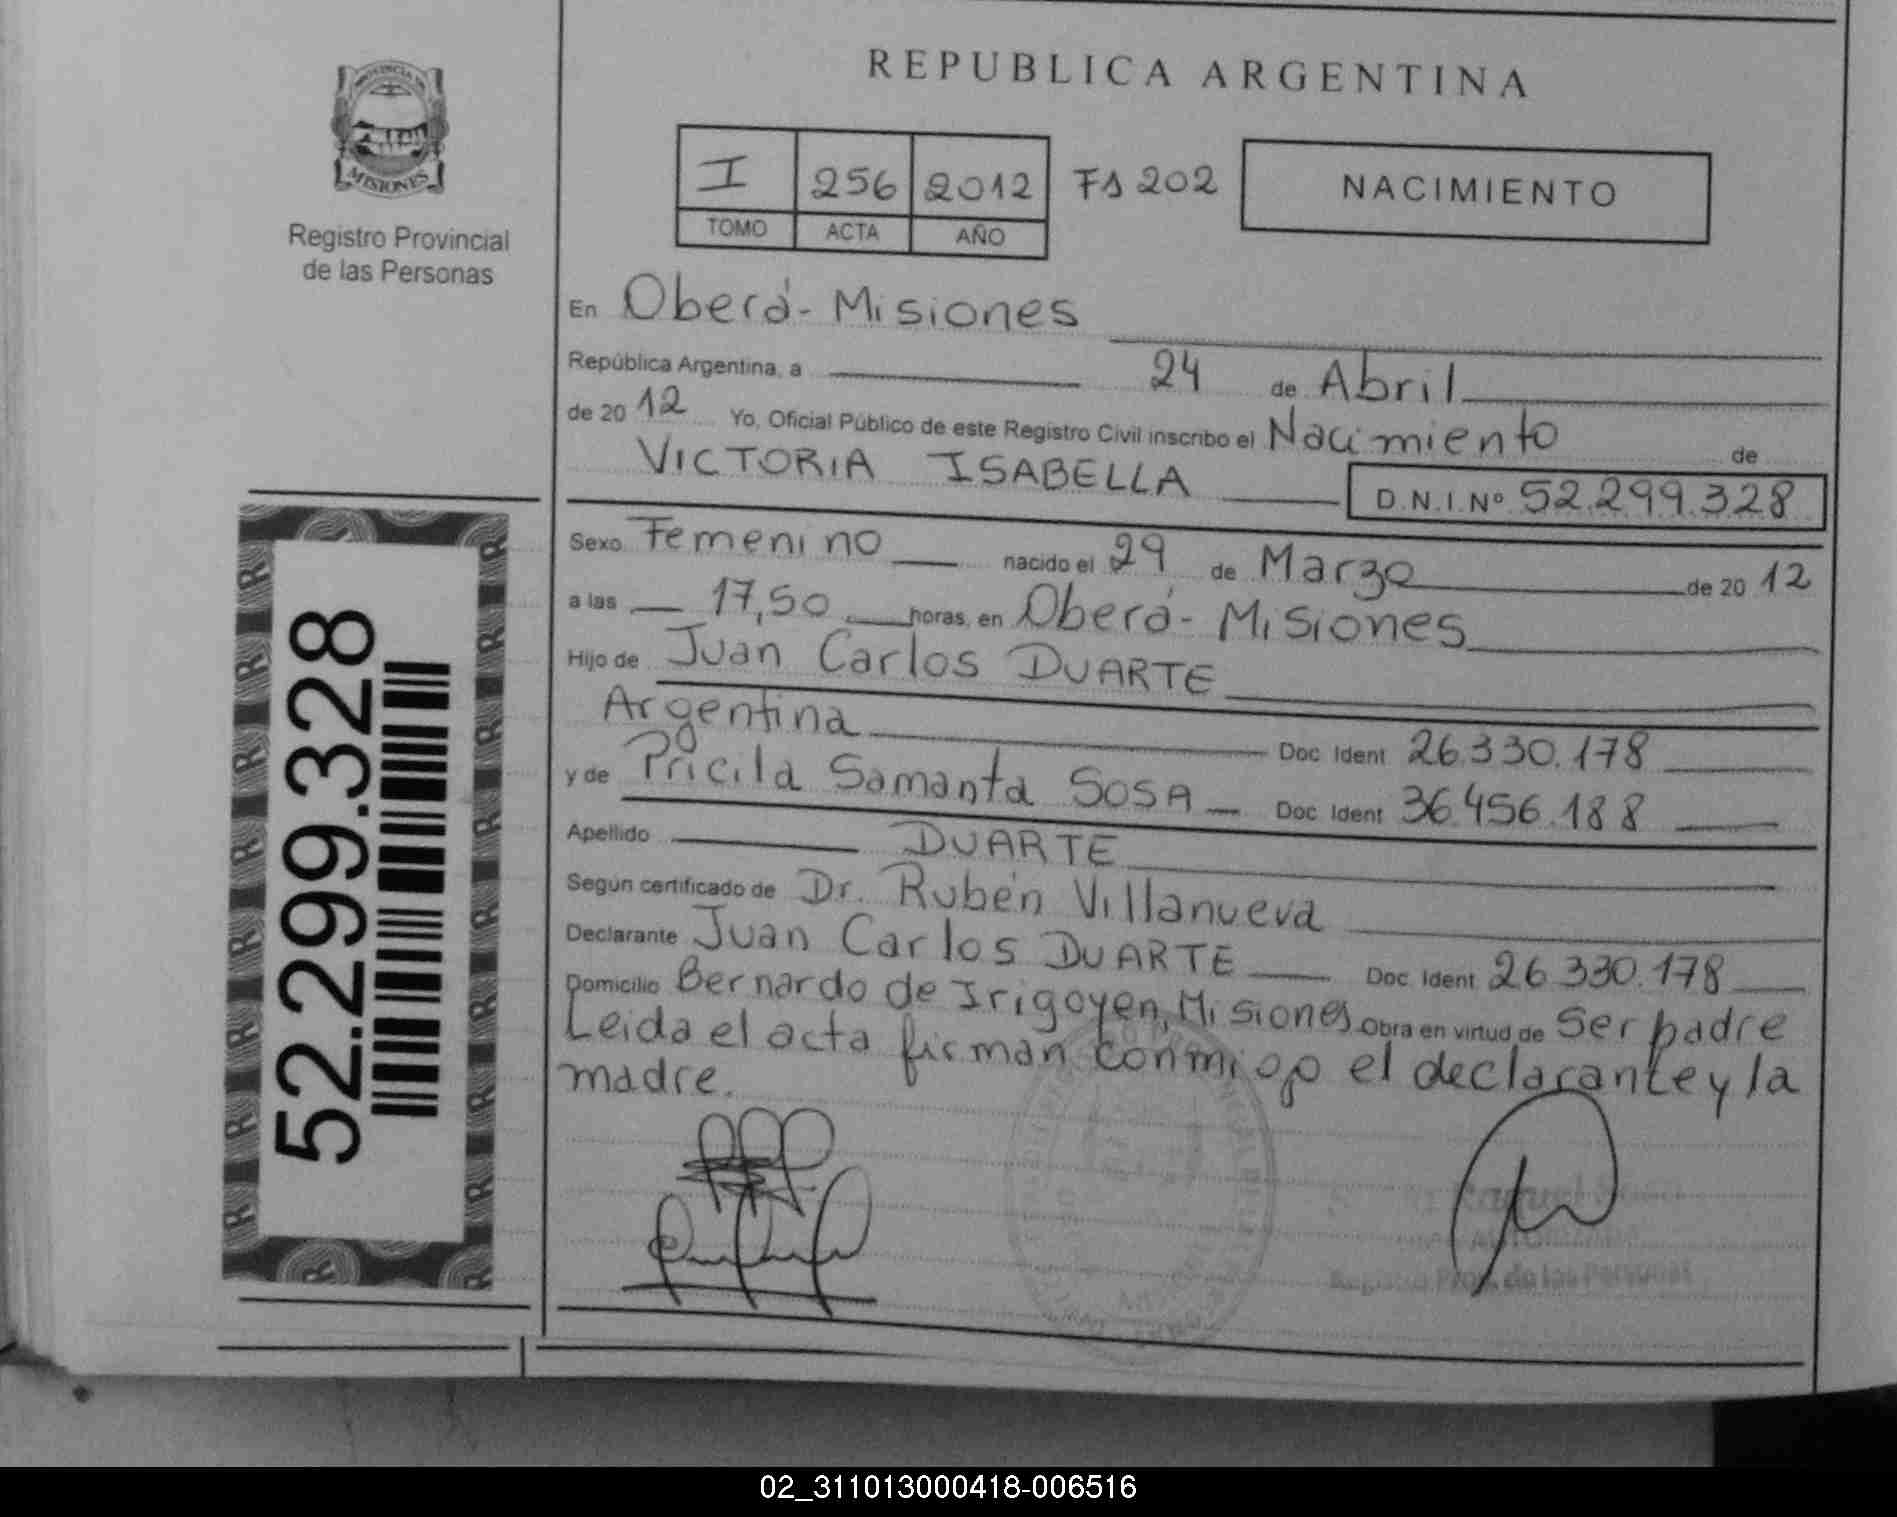 REPUBLICA ARGENTINA
PROVINCIA DE
MISIONES
Registro Provincial
de las Personas
I 256 2012 Fs 202
TOMO ACTA AÑO
NACIMIENTO
En Oberá - Misiones
República Argentina, a 24 de Abril
de 2012 Yo, Oficial Público de este Registro Civil inscribo el Nacimiento de
VICTORIA ISABELLA D.N.I.Nº 52.299.328
Sexo Femenino nacido el 29 de Marzo de 2012
a las 17,50 horas, en Oberá - Misiones
Hijo de Juan Carlos DUARTE
Argentina Doc Ident 26.330.178
y de Pricila Samanta SOSA Doc Ident 36.456.188
Apellido DUARTE
Según certificado de Dr. Rubén Villanueva
Declarante Juan Carlos DUARTE Doc Ident 26.330.178
Domicilio Bernardo de Irigoyen, Misiones Obra en virtud de Ser padre
Leida el acta firman conmigo el declarante y la
madre.
Registro Prov. de las Personas
52.299.328
02_311013000418-006516